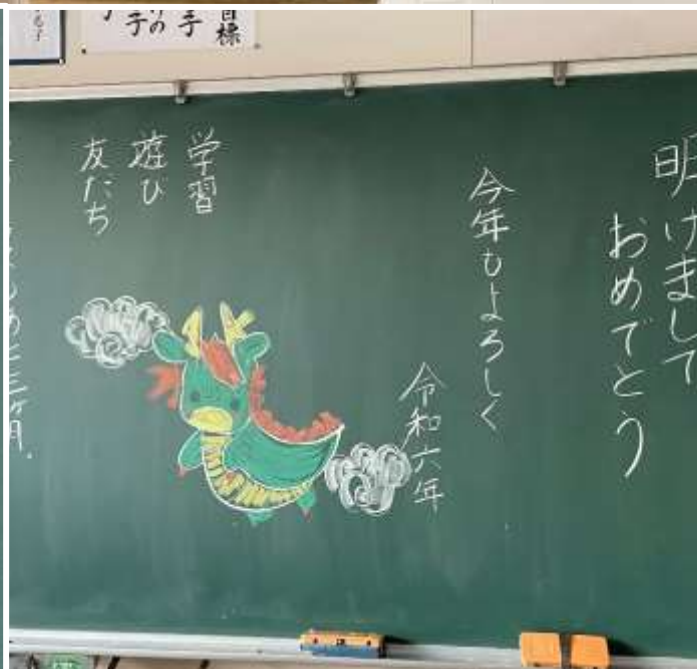 明けまして
おめでとう
今年もよろしく
令和六年
学習
遊び
友だち
目標